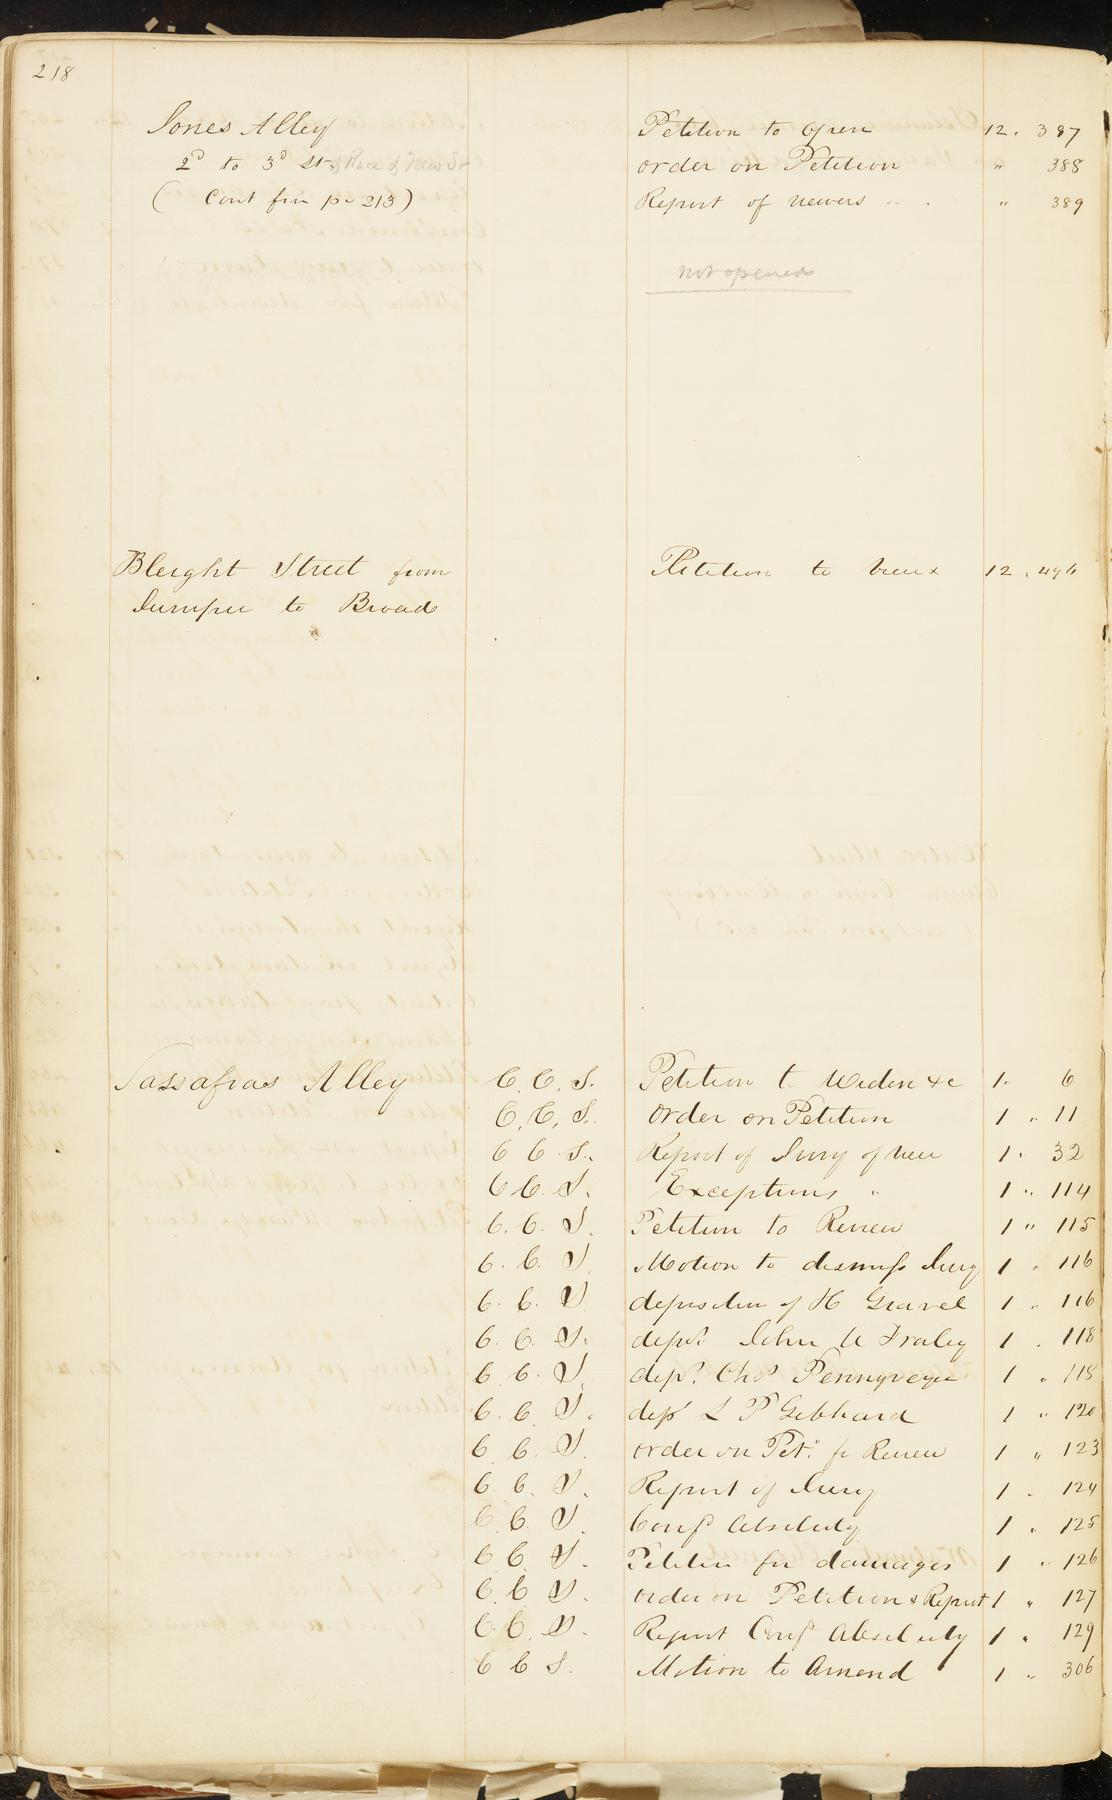 218
Jones Alley Petition to open 12. 387
2d to 3d St. Race & New St order on Petition " 388
( Cont fm pa 213) Report of viewers " 389
not opened
Bleight Street from Petition to View 12. 496
Juniper to Broad
Sassafras Alley C. C. S. Petition to Widen &c 1. 6
C. C. S. order on Petition 1 " 11
C C S. Report of Jury of view 1 " 32
C C. S. Exceptions " 1 " 114
C. C. S. Petition to Review 1 " 115
C. C. S Motion to dismiss Jury 1 " 116
C. C. S deposition of H Gravel 1 " 116
C C. S. depn. John U Fraley 1 " 118
C C. S depn. Chas 1 " 118
C. C. S. depn L P Gebhard 1 " 120
C C. S. order on Petn. for Review 1 " 123
C C. S. Report of Jury 1 " 124
C C S. Confd absolutely 1 " 125
C C. S. Petition for damages 1 " 126
C. C S. order on Petition & Report 1 " 127
C C. S. Report Confd Absolutely 1 " 129
C C S. Motion to Amend 1 " 306